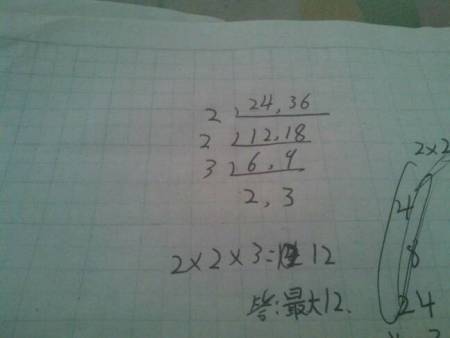 2 24,36
2 12,18
3 6,9
2,3
2×2×3=12
答:最大12.
2×2
4
8
24